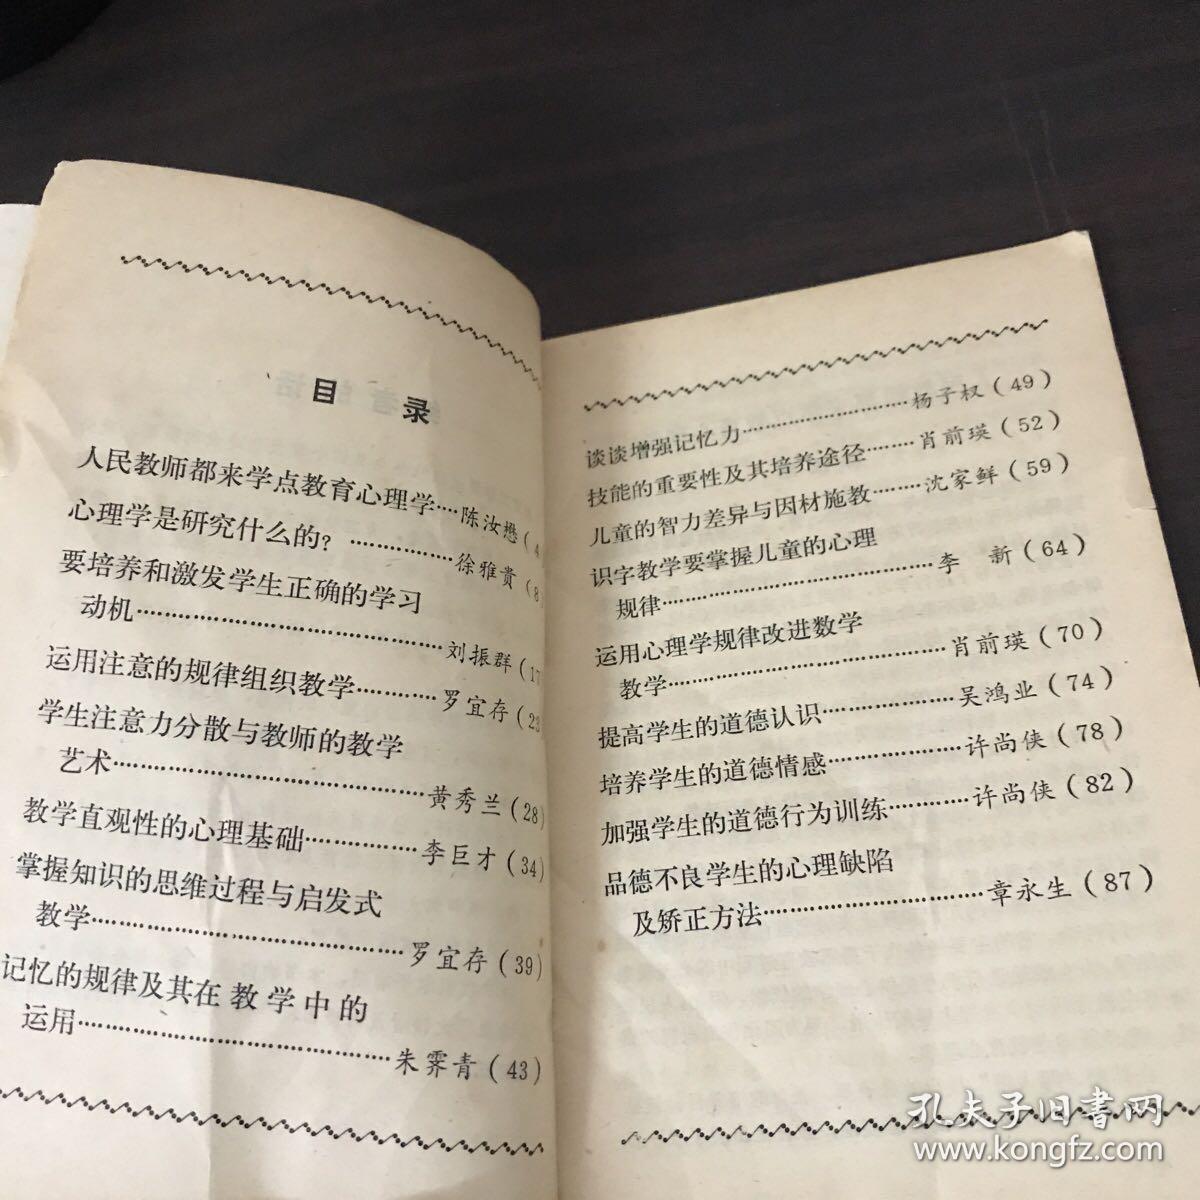 目 录
人民教师都来学点教育心理学····陈汝懋(4
心理学是研究什么的？················徐雅贵(8
要培养和激发学生正确的学习
动机································刘振群(17
运用注意的规律组织教学············罗宜存(23
学生注意力分散与教师的教学
艺术································黄秀兰(28)
教学直观性的心理基础················李巨才(34)
掌握知识的思维过程与启发式
教学································罗宜存(39)
记忆的规律及其在教学中的
运用································朱霁青(43)
谈谈增强记忆力························杨子权(49)
技能的重要性及其培养途径········肖前瑛(52)
儿童的智力差异与因材施教········沈家鲜(59)
识字教学要掌握儿童的心理
规律································李 新(64)
运用心理学规律改进数学
教学································肖前瑛(70)
提高学生的道德认识··················吴鸿业(74)
培养学生的道德情感··················许尚侠(78)
加强学生的道德行为训练············许尚侠(82)
品德不良学生的心理缺陷
及矫正方法··························章永生(87)
孔夫子旧书网
www.kongfz.com